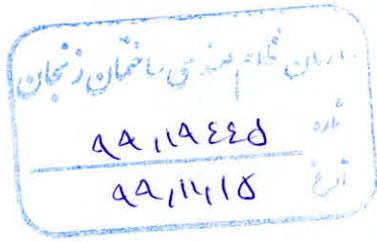 سازمان نظام مهندسی ساختمان زنجان
شماره ۹۹,۱۹۴۴۵
تاریخ ۹۹,۱۱,۱۵